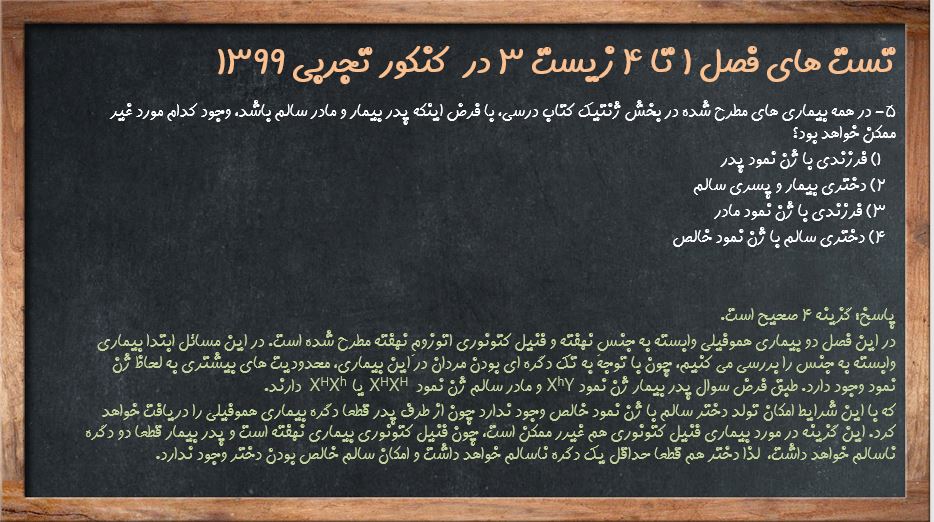 تست های فصل ۱ تا ۴ زیست ۳ در کنکور تجربی ۱۳۹۹
۵- در همه بیماری های مطرح شده در بخش ژنتیک کتاب درسی، با فرض اینکه پدر بیمار و مادر سالم باشد، وجود کدام مورد غیر
ممکن خواهد بود؟
۱) فرزندی با ژن نمود پدر
۲) دختری بیمار و پسری سالم
۳) فرزندی با ژن نمود مادر
۴) دختری سالم با ژن نمود خالص
پاسخ: گزینه ۴ صحیح است.
در این فصل دو بیماری هموفیلی وابسته به جنس نهفته و فنیل کتونوری اتوزوم نهفته مطرح شده است. در این مسائل ابتدا بیماری
وابسته به جنس را بررسی می کنیم، چون با توجه به تک دگره ای بودن مردان در این بیماری، محدودیت های بیشتری به لحاظ ژن
نمود وجود دارد. طبق فرض سوال پدر بیمار ژن نمود XʰY و مادر سالم ژن نمود XᴴXᴴ یا XᴴXʰ دارند.
که با این شرایط امکان تولد دختر سالم با ژن نمود خالص وجود ندارد چون از طرف پدر قطعا دگره بیماری هموفیلی را دریافت خواهد
کرد. این گزینه در مورد بیماری فنیل کتونوری هم غیرر ممکن است، چون فنیل کتونوری بیماری نهفته است و پدر بیمار قطعا دو دگره
ناسالم خواهد داشت، لذا دختر هم قطعا حداقل یک دگره ناسالم خواهد داشت و امکان سالم خالص بودن دختر وجود ندارد.